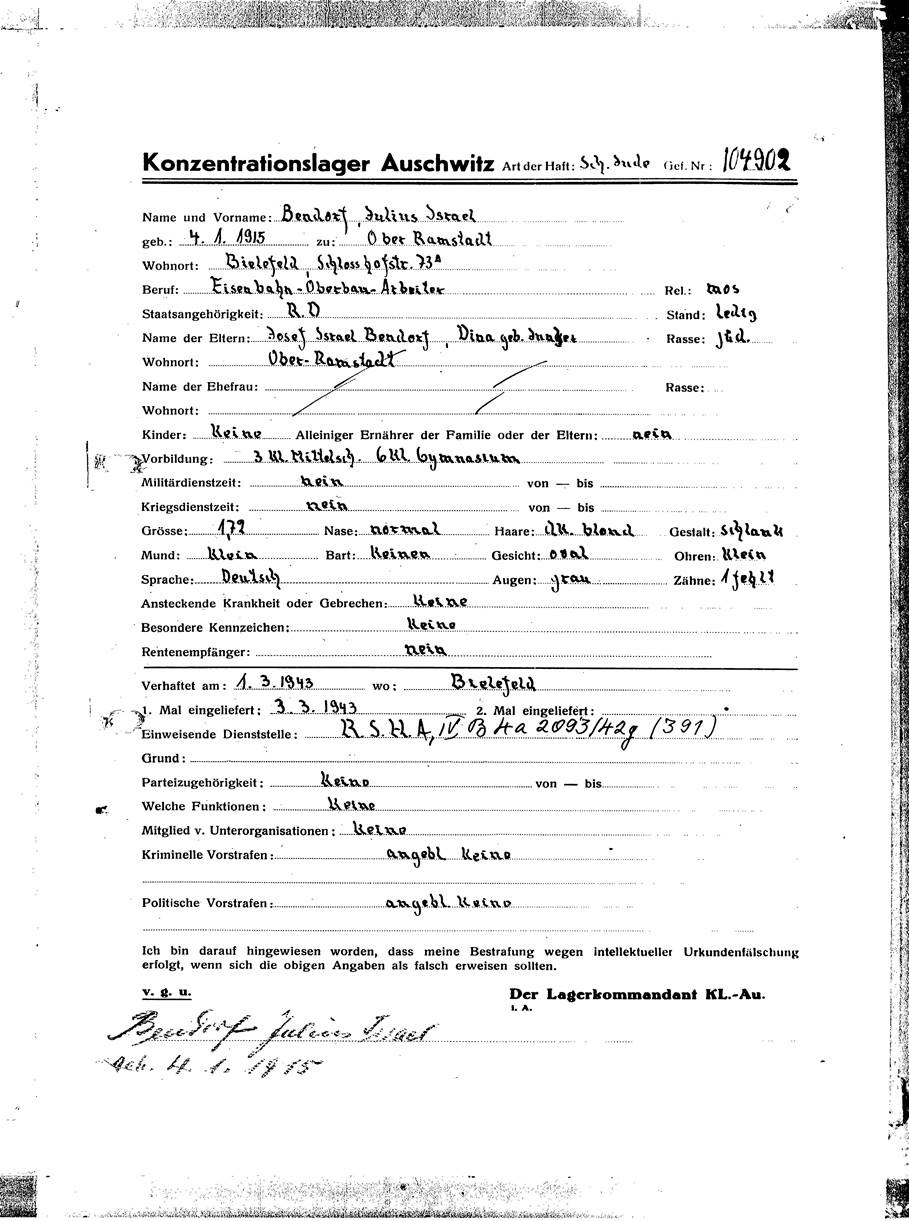 Konzentrationslager Auschwitz Art der Haft: Sch. Jude Gef. Nr: 104902
Name und Vorname: Bendorf, Julius Israel
geb.: 4. 1. 1915 zu: Ober Ramstadt
Wohnort: Bielefeld, Schlosshofstr. 73A
Beruf: Eisenbahn-Oberbau-Arbeiter Rel.: mos
Staatsangehörigkeit: R.D Stand: ledig
Name der Eltern: Josef Israel Bendorf, Dina geb. Rasse: jüd.
Wohnort: Ober-Ramstadt
Name der Ehefrau: Rasse:
Wohnort:
Kinder: Keine Alleiniger Ernährer der Familie oder der Eltern: nein
Vorbildung: 3 Kl. Mittelsch. 6 Kl. Gymnasium
Militärdienstzeit: nein von — bis
Kriegsdienstzeit: nein von — bis
Grösse: 1,72 Nase: normal Haare: dk. blond Gestalt: schlank
Mund: Klein Bart: Keinen Gesicht: oval Ohren: Klein
Sprache: Deutsch Augen: grau Zähne: 1 fehlt
Ansteckende Krankheit oder Gebrechen: Keine
Besondere Kennzeichen: Keine
Rentenempfänger: nein
Verhaftet am: 1. 3. 1943 wo: Bielefeld
1. Mal eingeliefert: 3. 3. 1943 2. Mal eingeliefert:
Einweisende Dienststelle: R.S.H.A, IV B 4a 2093/42g (391)
Grund:
Parteizugehörigkeit: Keine von — bis
Welche Funktionen: Keine
Mitglied v. Unterorganisationen: Keine
Kriminelle Vorstrafen: angebl. Keine
Politische Vorstrafen: angebl. Keine
Ich bin darauf hingewiesen worden, dass meine Bestrafung wegen intellektueller Urkundenfälschung
erfolgt, wenn sich die obigen Angaben als falsch erweisen sollten.
v. g. u. Der Lagerkommandant KL.-Au.
I. A.
Bendorf Julius Israel
geb. 4. 1. 1915